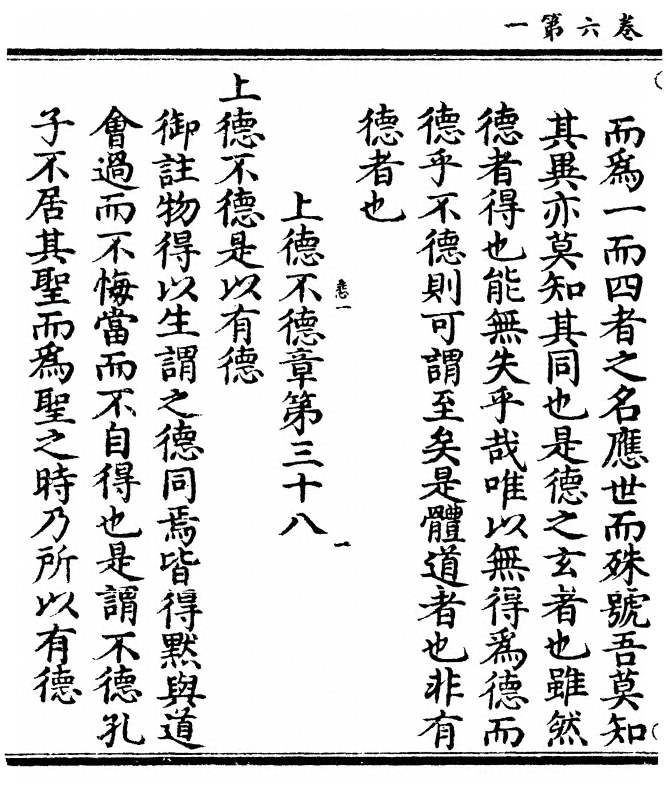 卷六第一
而爲一而四者之名應世而殊號吾莫知
其異亦莫知其同也是德之玄者也雖然
德者得也能無失乎哉唯以無得爲德而
德乎不德則可謂至矣是體道者也非有
德者也
上德不德章第三十八
一
上德不德是以有德
御註物得以生謂之德同焉皆得默與道
會過而不悔當而不自得也是謂不德孔
子不居其聖而爲聖之時乃所以有德